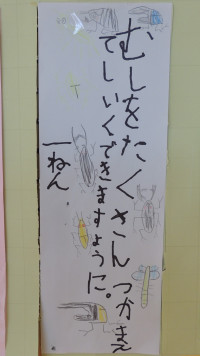 むしをたくさんつかまえ
てしいくできますように。
一ねん